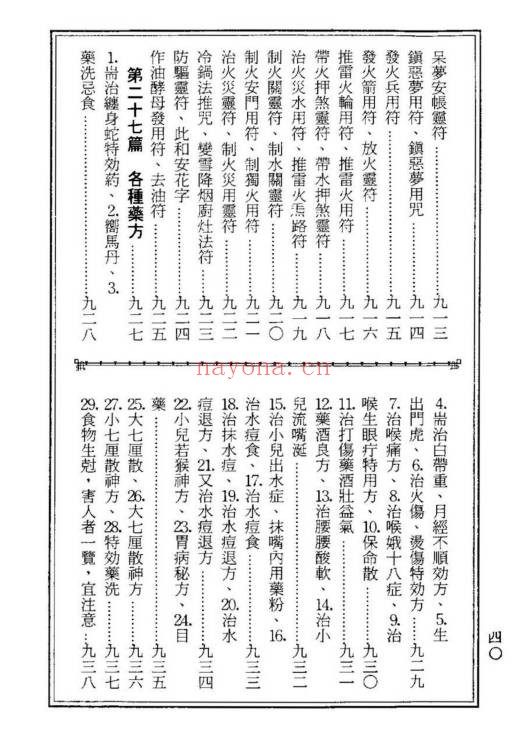 呆夢安帳靈符……九一三
鎮惡夢用符、鎮惡夢用咒……九一四
發火兵用符……九一五
發火箭用符、放火靈符……九一六
推雷火輪用符、推雷火用符……九一七
帶火押煞靈符、帶水押煞靈符……九一八
治火災水用符、推雷火馬路符……九一九
制火關靈符、制水關靈符……九二〇
制火安門用符、制獨火用符……九二一
治火災靈符、制火災用靈符……九二二
冷鍋法推咒、變雪降烟廚灶法符……九二三
防驅靈符、此和安花字……九二四
作油酵母發用符、去油符……九二五
第二十七篇 各種藥方……九二七
1.耑治纏身蛇特効药、2.嚮馬丹、3.
藥洗忌食……九二八
nayona.cn
4.耑治白帶重、月經不順効方、5.生
出門虎、6.治火傷、燙傷特効方……九二九
7.治喉痛方、8.治喉娥十八症、9.治
喉生眼疔特用方、10.保命散……九三〇
11.治打傷藥酒壯益氣……九三一
12.藥酒良方、13.治腰腰酸軟、14.治小
兒流嘴涎……九三二
15.治小兒出水症、抹嘴內用藥粉、16.
治水痘食、17.治水痘食……九三三
18.治抹水痘、19.治水痘退方、20.治水
痘退方、21.又治水痘退方……九三四
22.小兒若猴神方、23.胃病秘方、24.目
藥……九三五
25.大七厘散、26.大七厘散神方……九三六
27.小七厘散神方、28.特効藥洗……九三七
29.食物生尅，害人者一覽，宜注意…九三八
四〇